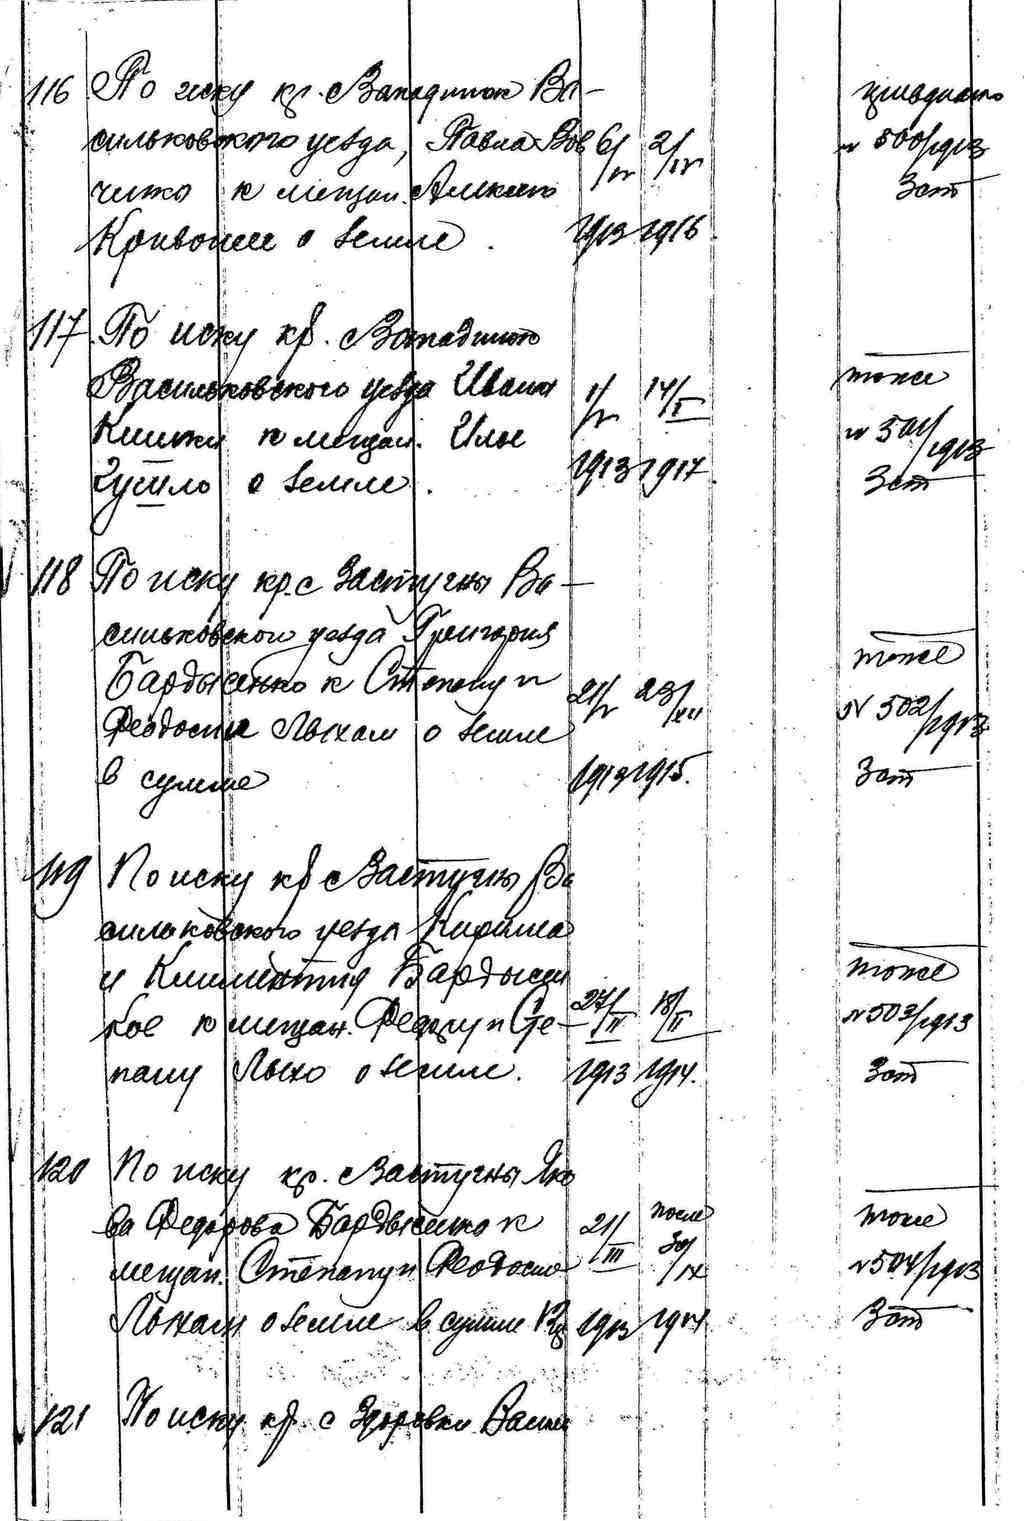 116 По иску кр. с Западинок Ва-
сильковского уезда, Павла Вов 6/IV 2/IV
чико к мещан. Алексею
Кривошее о земле. 1913 1916
гражданско
№ 500/1913
Зст
117 По иску кр. с Западинок
Васильковского уезда Ивана 1/V 14/I
Кишки к мещан. Илье
о земле. 1913 1917
тоже
№ 501/1913
Зст
118 По иску кр. с Застугны Ва-
сильковского уезда Григория
Бардысенко к Степану и 21/V 23/XII
Феодосию Лыхам о земле
в сумме 1913 1915.
тоже
№ 502/1913
Зст
119 По иску кр с Застугны Ва
сильковского уезда Кирилла
и Климентия Бардысен
кое к мещан. Федору и Сте- 27/II 18/II
пану Лыхо о земле. 1913 1914.
тоже
№ 503/1913
Зст
120 По иску кр. с Застугны Яко
ва Федорова Бардысенко к 21/III после 30/IX
мещан. Степану и Феодосию
Лыхам о земле в сумме 1913 1914
тоже
№ 504/1913
Зст
121 По иску кр. с Здоровки Васил